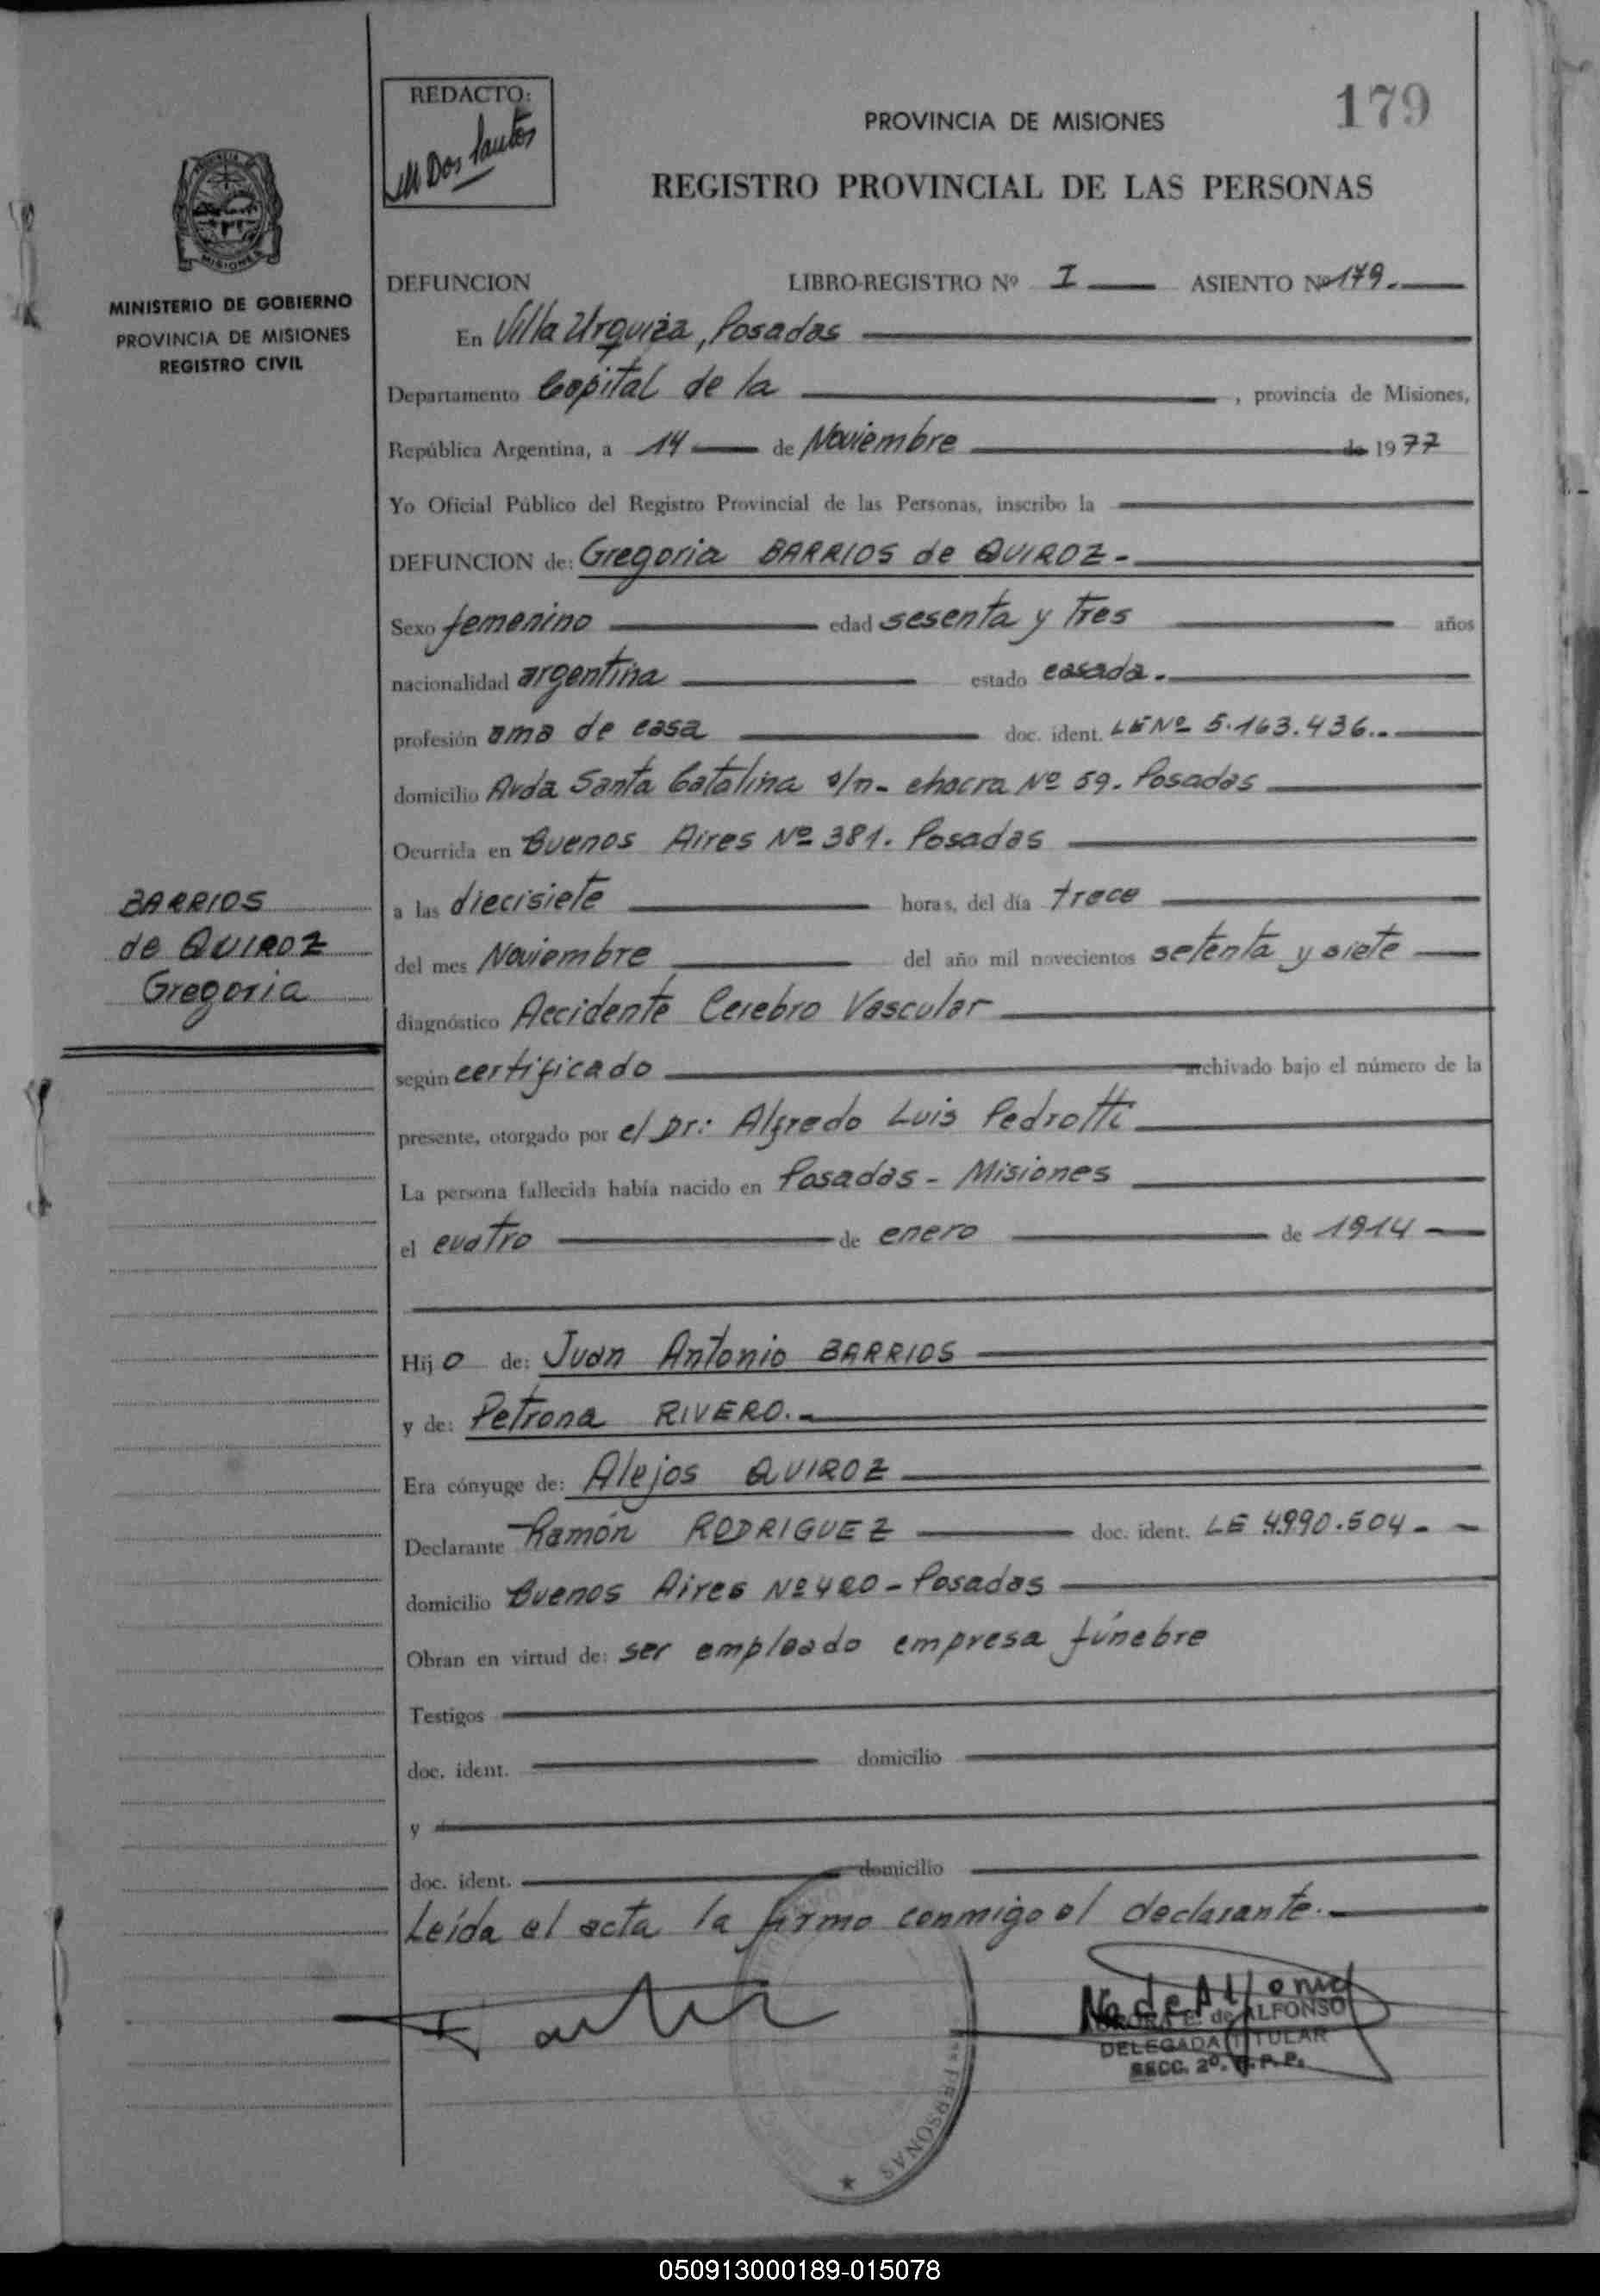 REDACTO:
M Dos Santos
PROVINCIA DE MISIONES
179
REGISTRO PROVINCIAL DE LAS PERSONAS
MISIONES
MINISTERIO DE GOBIERNO
PROVINCIA DE MISIONES
REGISTRO CIVIL
DEFUNCION LIBRO-REGISTRO Nº I ASIENTO Nº 179.
En Villa Urquiza, Posadas
Departamento Capital de la , provincia de Misiones,
República Argentina, a 14 de Noviembre de 1977
Yo Oficial Público del Registro Provincial de las Personas, inscribo la
DEFUNCION de: Gregoria BARRIOS de QUIROZ-
Sexo femenino edad sesenta y tres años
nacionalidad argentina estado casada.
profesión ama de casa doc. ident. LE Nº 5.163.436.-
domicilio Avda Santa Catalina s/n- chacra Nº 59. Posadas
Ocurrida en Buenos Aires Nº 381. Posadas
a las diecisiete horas, del día trece
del mes Noviembre del año mil novecientos setenta y siete
diagnóstico Accidente Cerebro Vascular
según certificado archivado bajo el número de la
presente, otorgado por el Dr: Alfredo Luis Pedrotti
La persona fallecida había nacido en Posadas - Misiones
el cuatro de enero de 1914
BARRIOS
de QUIROZ
Gregoria
Hijo de: Juan Antonio BARRIOS
y de: Petrona RIVERO.-
Era cónyuge de: Alejos QUIROZ
Declarante Ramón RODRIGUEZ doc. ident. LE 4.990.504.-
domicilio Buenos Aires Nº 420 - Posadas
Obran en virtud de: ser empleado empresa fúnebre
Testigos
doc. ident. domicilio
y
doc. ident. domicilio
Leída el acta la firmo conmigo el declarante.-
de ALFONSO
DELEGADA TITULAR
SECC. 2º. R.P.P.
PERSONAS
050913000189-015078